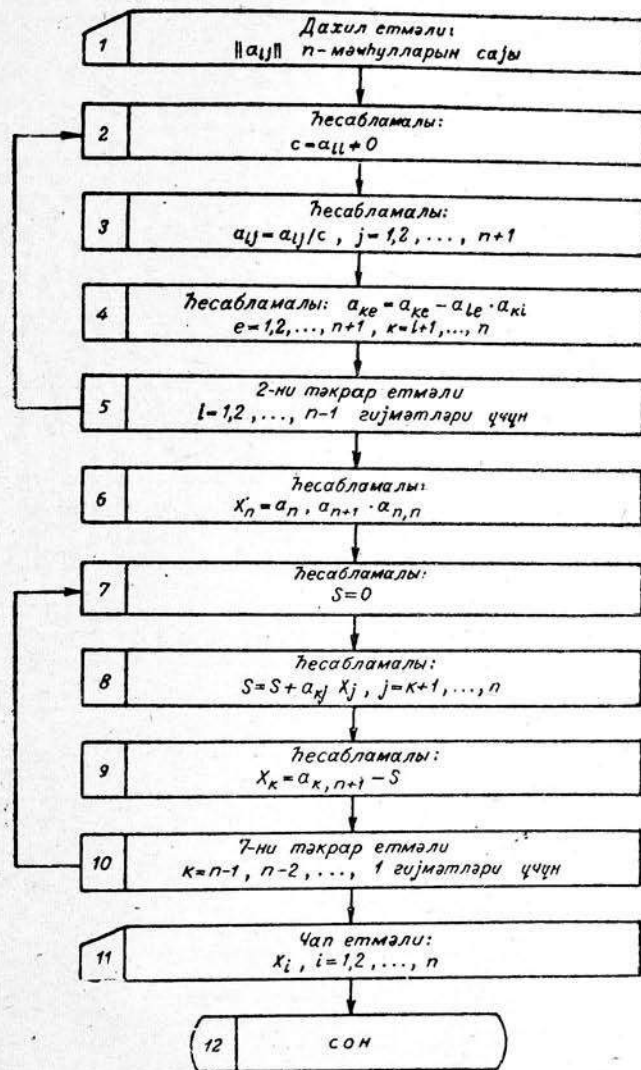 1
Дахил етмәли:
||aij|| n-мәҹһулларын сајы
2
Һесабламалы:
c=aii≠0
3
Һесабламалы:
aij=aij/c , j=1,2,..., n+1
4
Һесабламалы: aкe=aкe−aie·aкi
e=1,2,..., n+1 , к=i+1,..., n
5
2-ни тәкрар етмәли
i=1,2,..., n-1 гијмәтләри үчүн
6
Һесабламалы:
Xn=an , an+1·an,n
7
Һесабламалы:
S=0
8
Һесабламалы:
S=S+aкj Xj , j=к+1,...,n
9
Һесабламалы:
Xк=aк,n+1−S
10
7-ни тәкрар етмәли
к=n-1, n-2,..., 1 гијмәтләри үчүн
11
Чап етмәли:
Xi , i=1,2,..., n
12
сон